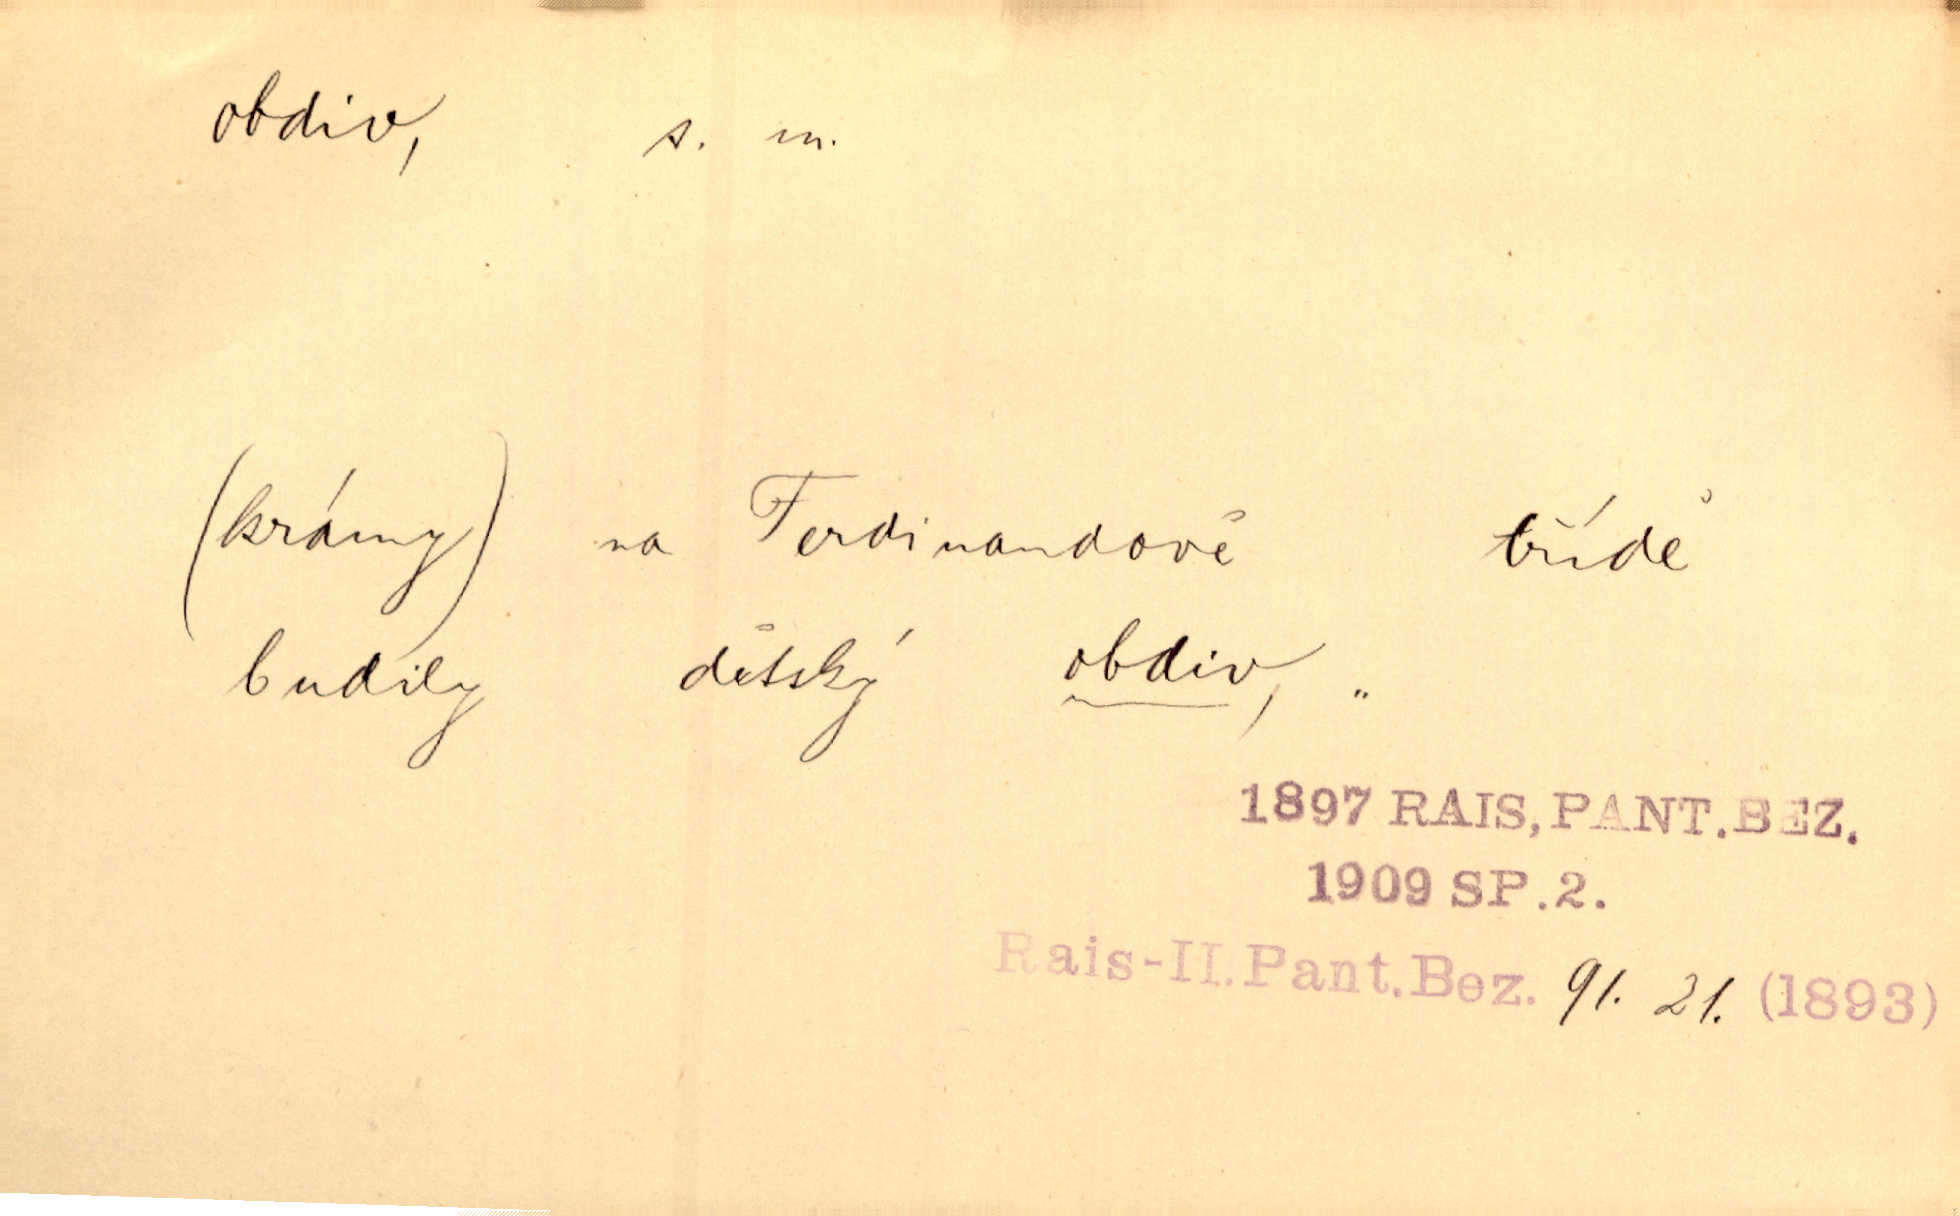 obdiv, s. m.
(krámy) na Ferdinandově třídě
budily dětský obdiv, „
1897 RAIS, PANT. BEZ.
1909 SP. 2.
Rais-II. Pant. Bez. 91. 21. (1893)